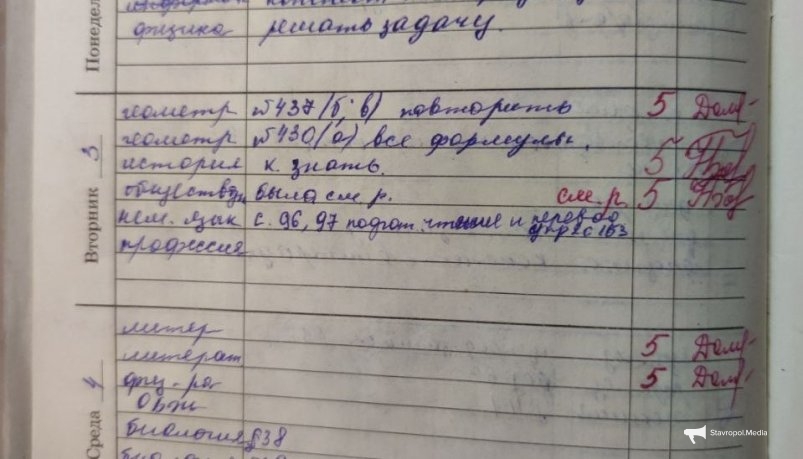 Понедел
физика решать задачу.
Вторник 3
геометр №437 (б; в) повторить 5
геометр №430 (а) все формулы.
история к. знать. 5
была см. р. см. р. 5
нем. язык с. 96, 97 подгот. чтение и перевод
упр 2 с 163
профессия
Среда 4
литер
литерат. 5
физ-ра 5
ОБЖ
биология §38
Stavropol.Media